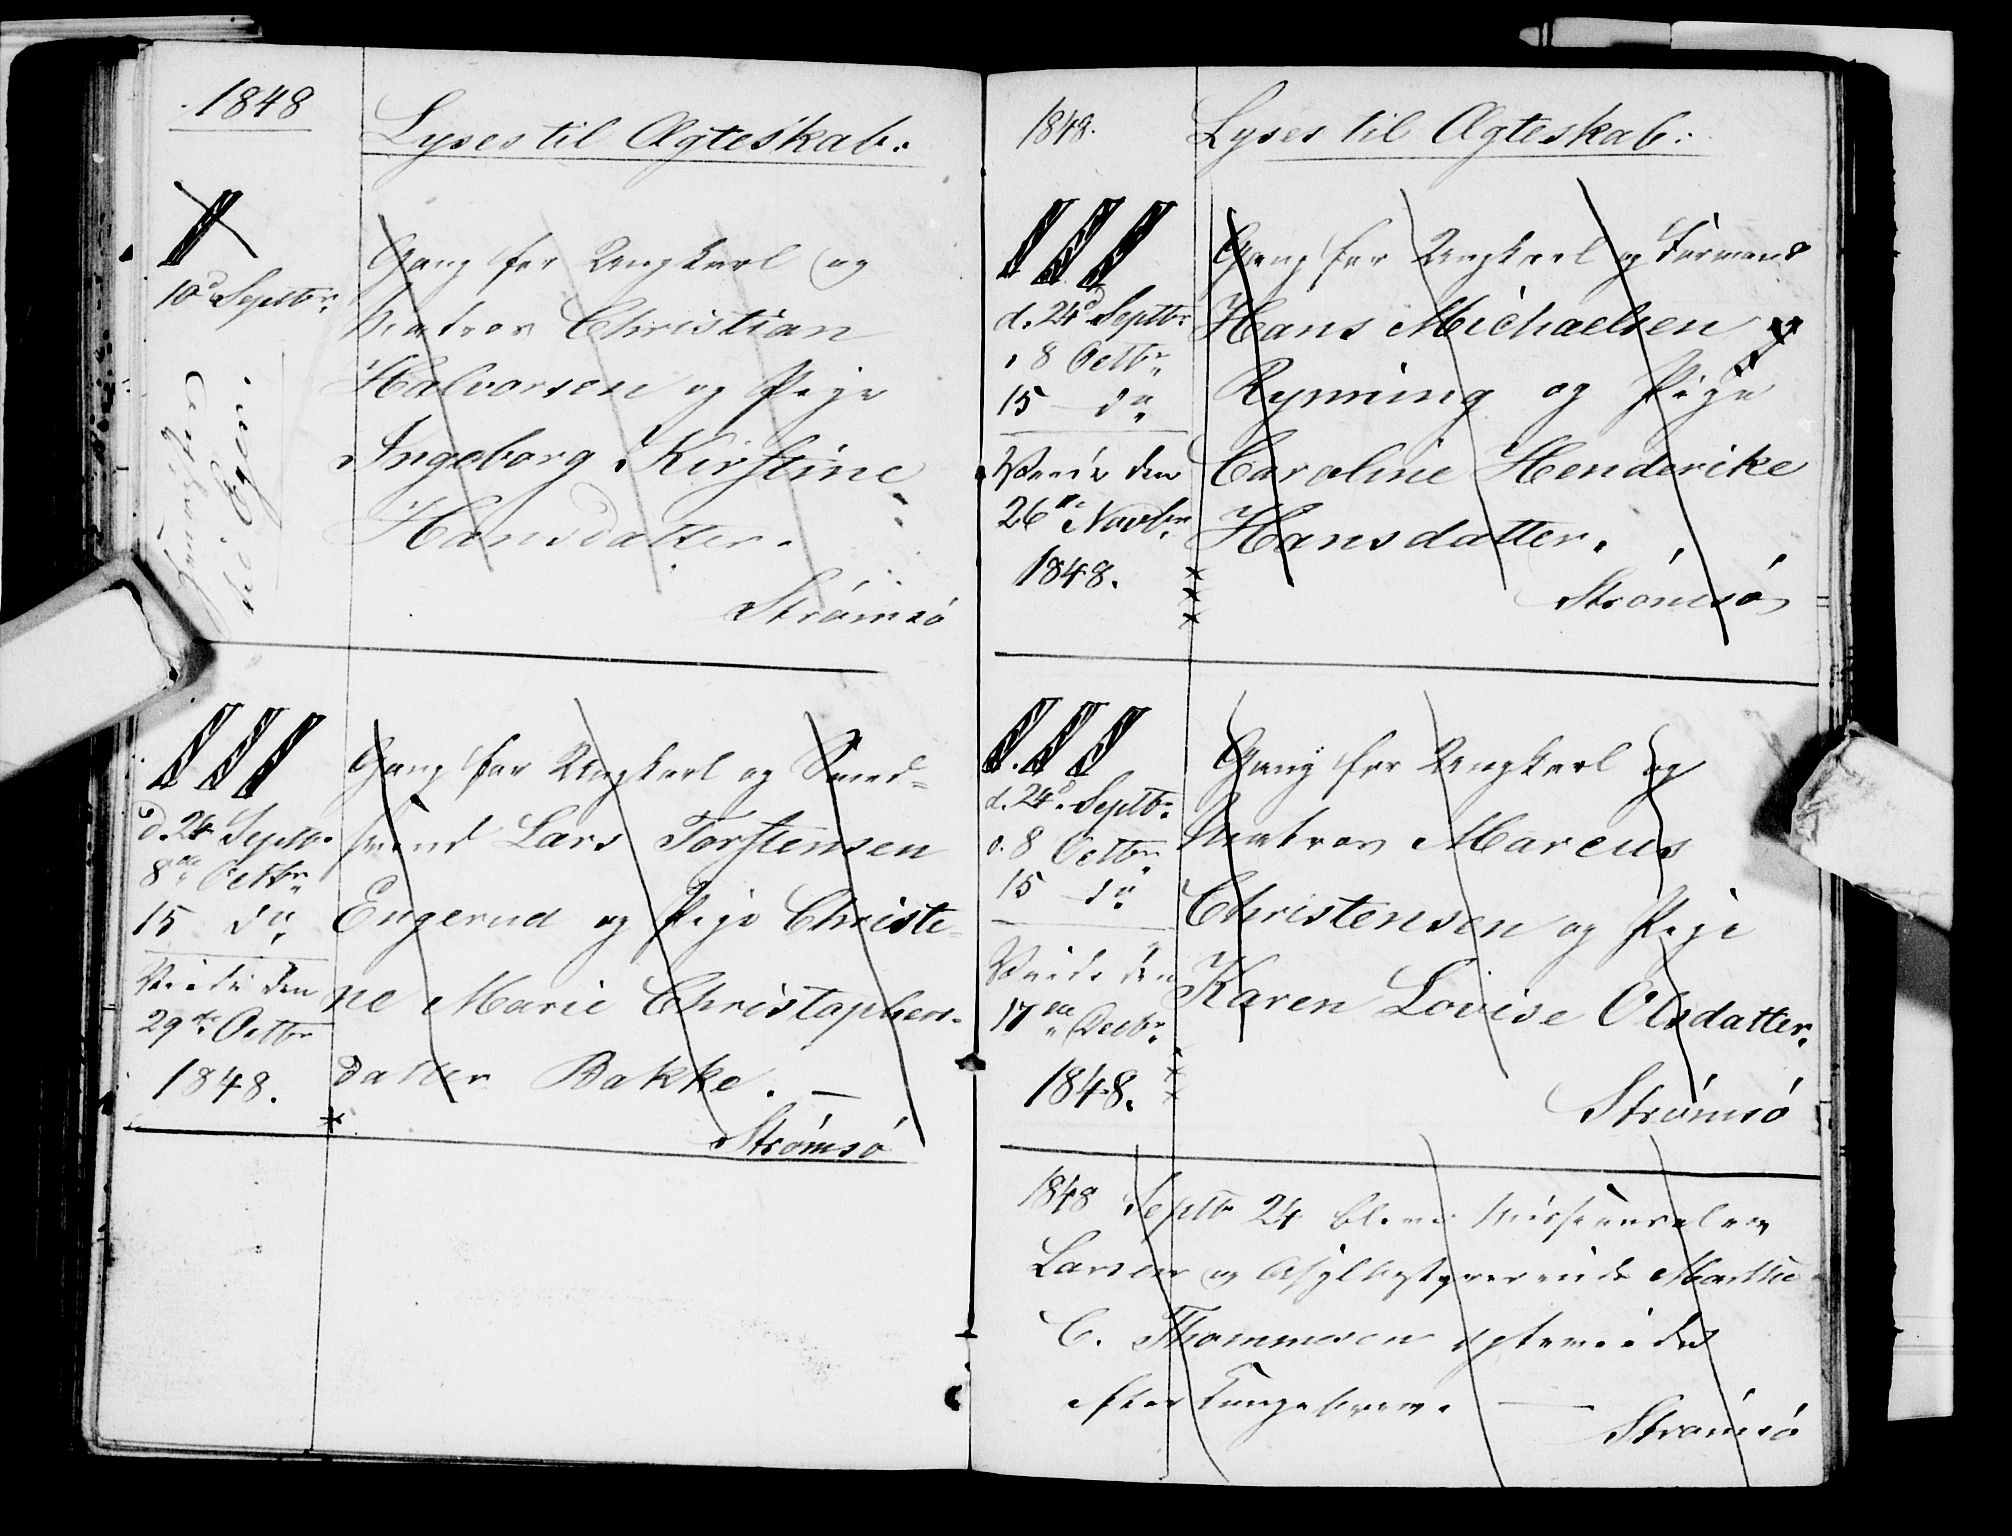 1848
Lyses til Ægteskab:
I
10d Septbr:
Gang for Ungkarl og
Matros Christian
Halvorsen og Pige
Ingeborg Kirstine
Hansdatter.
Strömsö
III
d. 24 Septbr.
8de Octbr
15 do
Viede den
29de Octbr
1848.
Gang for Ungkarl og Smed=
svend Lars Torstensen
Engerud og Pige Christi-
ne Marie Christophers-
datter Bakke. —
Strömsö
1848.
Lyses til Ægteskab:
III
d. 24d Septbr.
8 Octbr
15 do
Viede den
26de Novbr.
1848.
Gang for Ungkarl og Formand
Hans Michaelsen
Rynning og Pige
Caroline Henderike
Hansdatter.
Strömsö
III
d. 24d. Septbr.
d. 8 Octbr
15 do
Viede den
17de Decbr.
1848.
Gang for Ungkarl og
Matros Marcus
Christensen og Pige
Karen Lovise Olsdatter.
Strömsö
1848 Septbr 24 bleve
Larsen og Asylbestyrerinde Marthe
C. Thommesen
efter Kongebrev. —
Strömsö